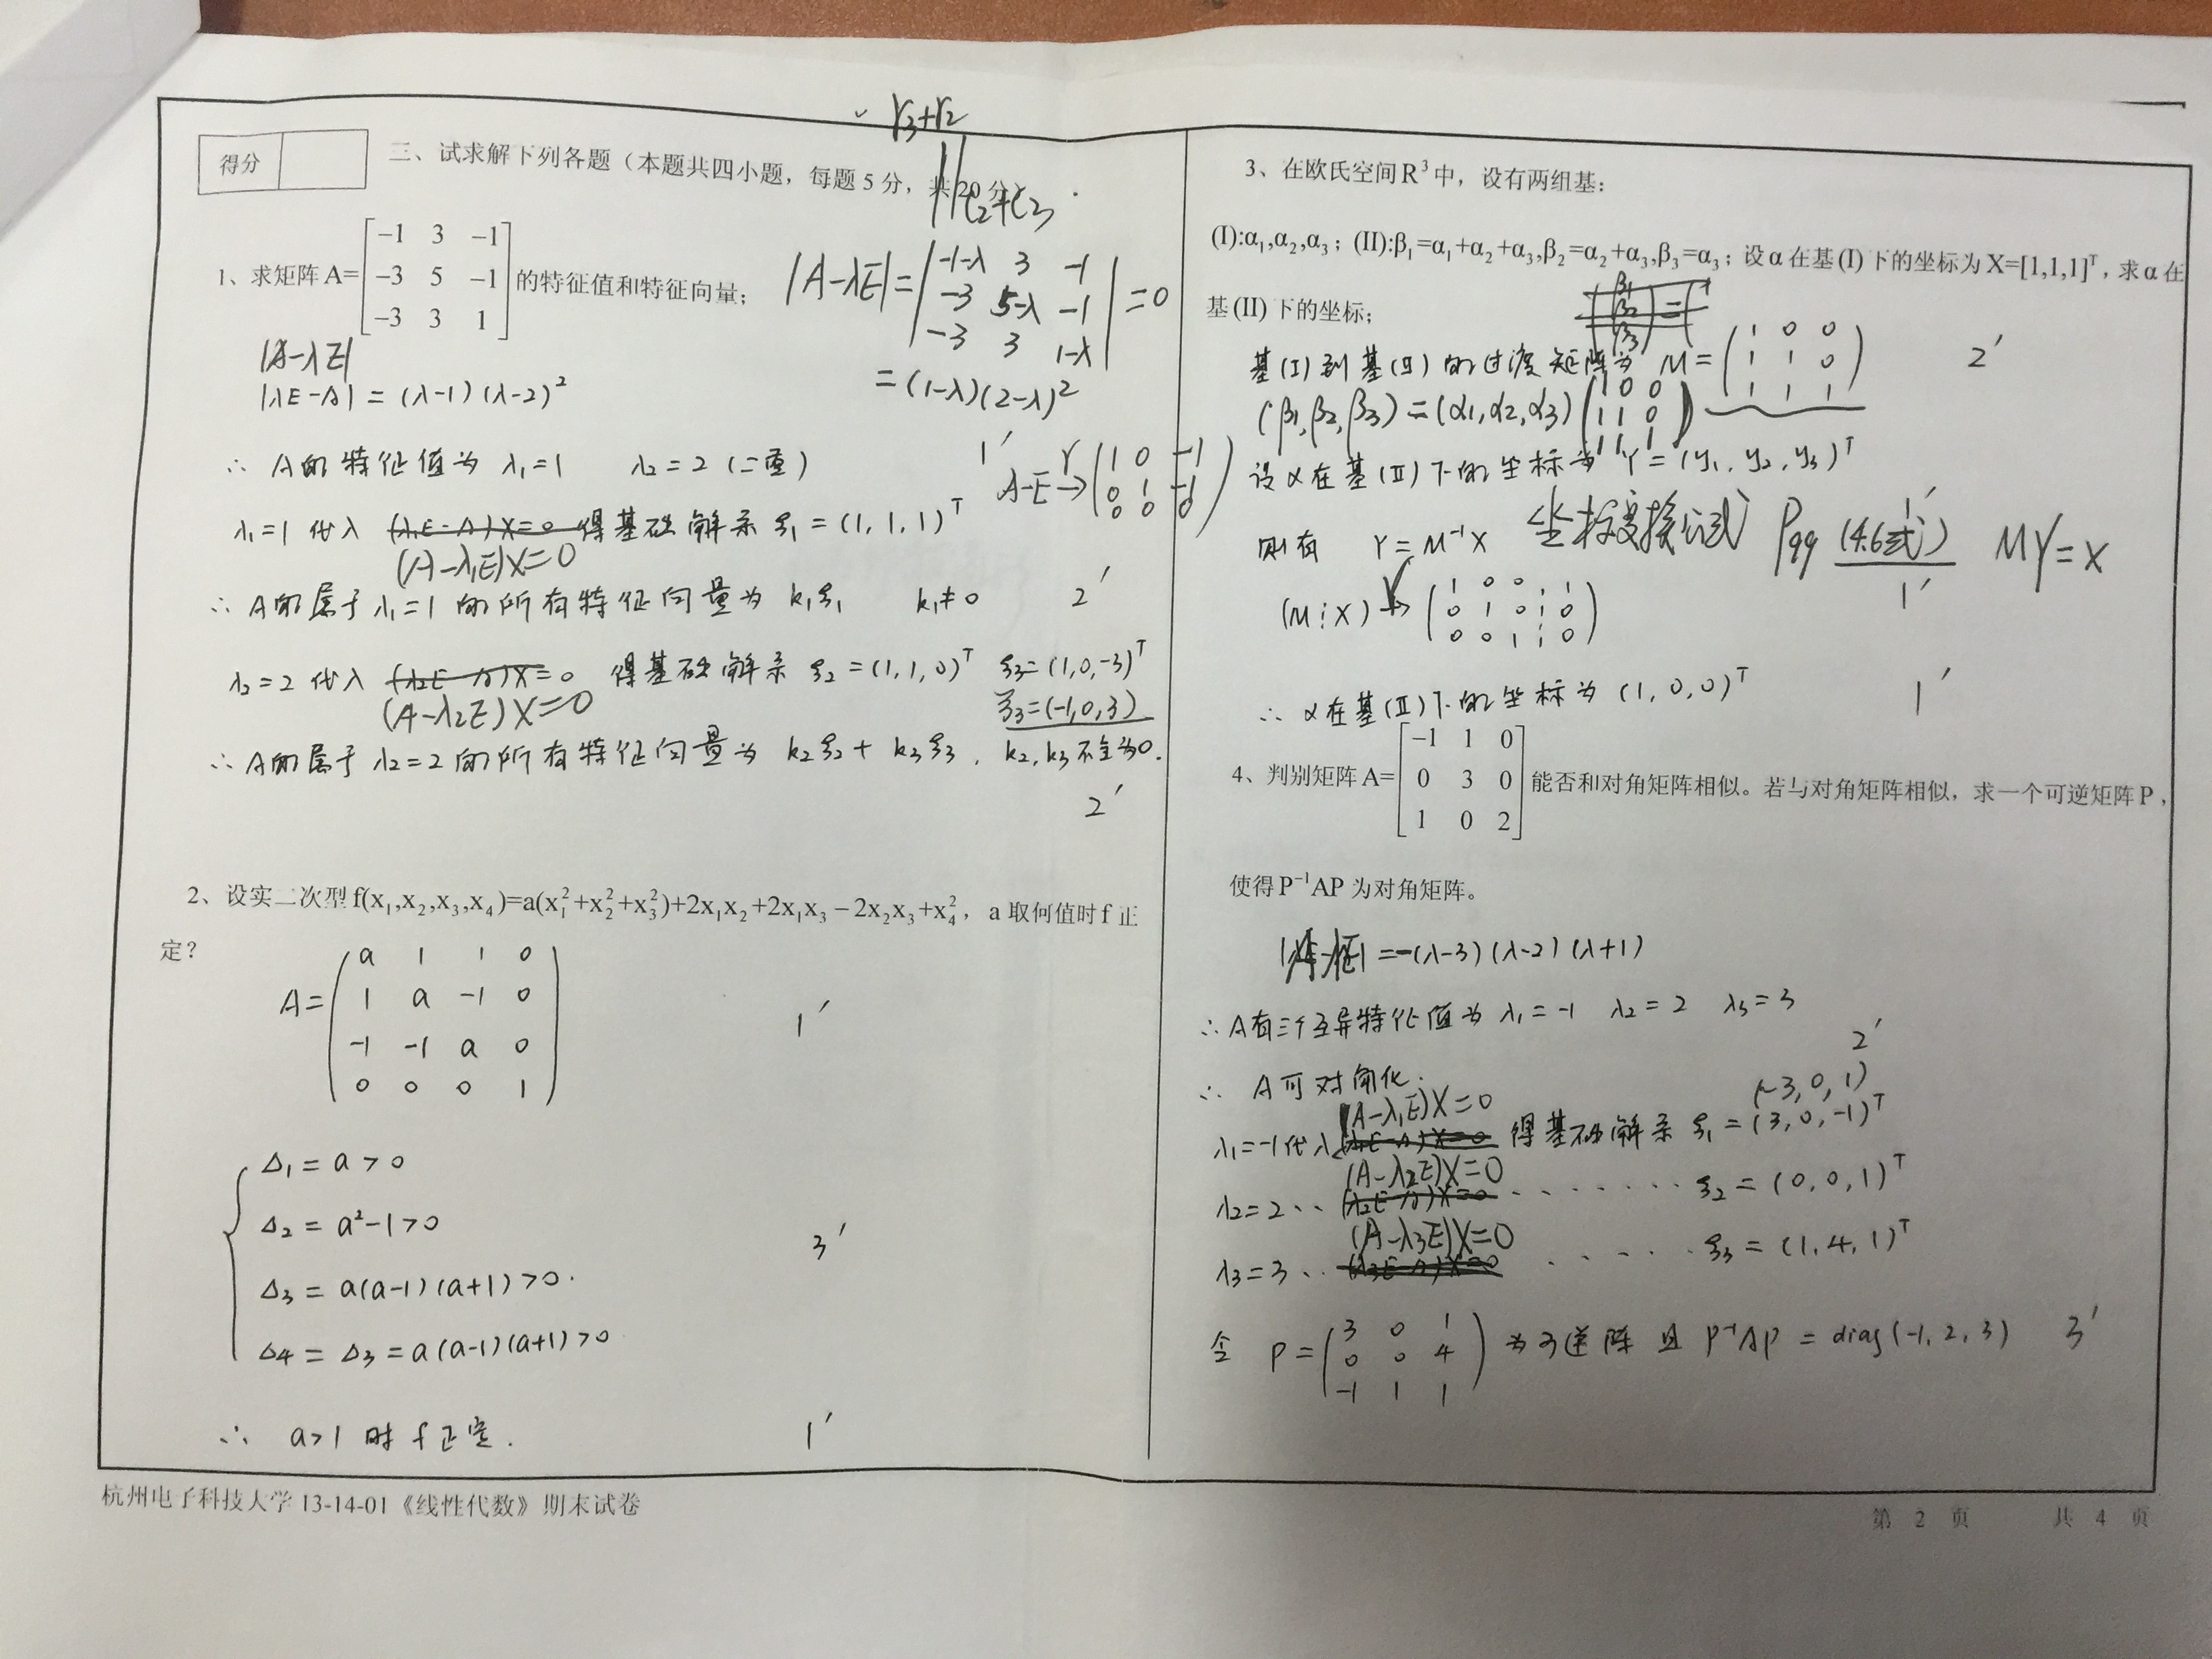 r₃+r₂
得分
三、试求解下列各题（本题共四小题，每题5分，共20分）
c₂+c₃
1、求矩阵A=[-1 3 -1; -3 5 -1; -3 3 1]的特征值和特征向量；
|A-λE|=|-1-λ 3 -1; -3 5-λ -1; -3 3 1-λ|=0
=(1-λ)(2-λ)²
|A-λE|
|λE-A|=(λ-1)(λ-2)²
∴ A的特征值为 λ₁=1 λ₂=2 (二重) 1′
A-E r→ (1 0 -1; 0 1 -1; 0 0 0)
λ₁=1 代入 (λ₁E-A)X=0 得基础解系 ξ₁=(1,1,1)ᵀ
(A-λ₁E)X=0
∴ A的属于 λ₁=1 的所有特征向量为 k₁ξ₁ k₁≠0 2′
λ₂=2 代入 (λ₂E-A)X=0 得基础解系 ξ₂=(1,1,0)ᵀ ξ₃=(1,0,-3)ᵀ
(A-λ₂E)X=0 ξ₃=(-1,0,3)
∴ A的属于 λ₂=2 的所有特征向量为 k₂ξ₂+k₃ξ₃, k₂,k₃不全为0.
2′
2、设实二次型f(x₁,x₂,x₃,x₄)=a(x₁²+x₂²+x₃²)+2x₁x₂+2x₁x₃-2x₂x₃+x₄²，a取何值时f正
定？
A=(a 1 1 0; 1 a -1 0; -1 -1 a 0; 0 0 0 1) 1′
Δ₁=a>0
Δ₂=a²-1>0
3′
Δ₃=a(a-1)(a+1)>0.
Δ₄=Δ₃=a(a-1)(a+1)>0
∴ a>1 时 f正定. 1′
3、在欧氏空间R³中，设有两组基：
(I):α₁,α₂,α₃；(II):β₁=α₁+α₂+α₃,β₂=α₂+α₃,β₃=α₃；设α在基(I)下的坐标为X=[1,1,1]ᵀ，求α在
基(II)下的坐标；
基(I)到基(II)的过渡矩阵为 M=(1 0 0; 1 1 0; 1 1 1) 2′
(β₁,β₂,β₃)=(α₁,α₂,α₃)(1 0 0; 1 1 0; 1 1 1)
设α在基(II)下的坐标为 Y=(y₁,y₂,y₃)ᵀ
1′
则有 Y=M⁻¹X 坐标变换公式 P99 (4.6式) MY=X
1′
(M⋮X) r→ (1 0 0 ⋮ 1; 0 1 0 ⋮ 0; 0 0 1 ⋮ 0)
∴ α在基(II)下的坐标为 (1,0,0)ᵀ 1′
4、判别矩阵A=[-1 1 0; 0 3 0; 1 0 2]能否和对角矩阵相似。若与对角矩阵相似，求一个可逆矩阵P，
使得P⁻¹AP为对角矩阵。
|A-λE|=-(λ-3)(λ-2)(λ+1)
∴ A有三个互异特征值为 λ₁=-1 λ₂=2 λ₃=3
2′
∴ A可对角化.
(A-λ₁E)X=0 (-3,0,1)
λ₁=-1代入 (λ₁E-A)X=0 得基础解系 ξ₁=(3,0,-1)ᵀ
(A-λ₂E)X=0
λ₂=2 ‥ (λ₂E-A)X=0 ········ ξ₂=(0,0,1)ᵀ
(A-λ₃E)X=0
λ₃=3 ‥ (λ₃E-A)X=0 ····· ξ₃=(1,4,1)ᵀ
令 P=(3 0 1; 0 0 4; -1 1 1) 为可逆阵 且 P⁻¹AP=diag(-1,2,3) 3′
杭州电子科技大学 13-14-01《线性代数》期末试卷
第 2 页 共 4 页